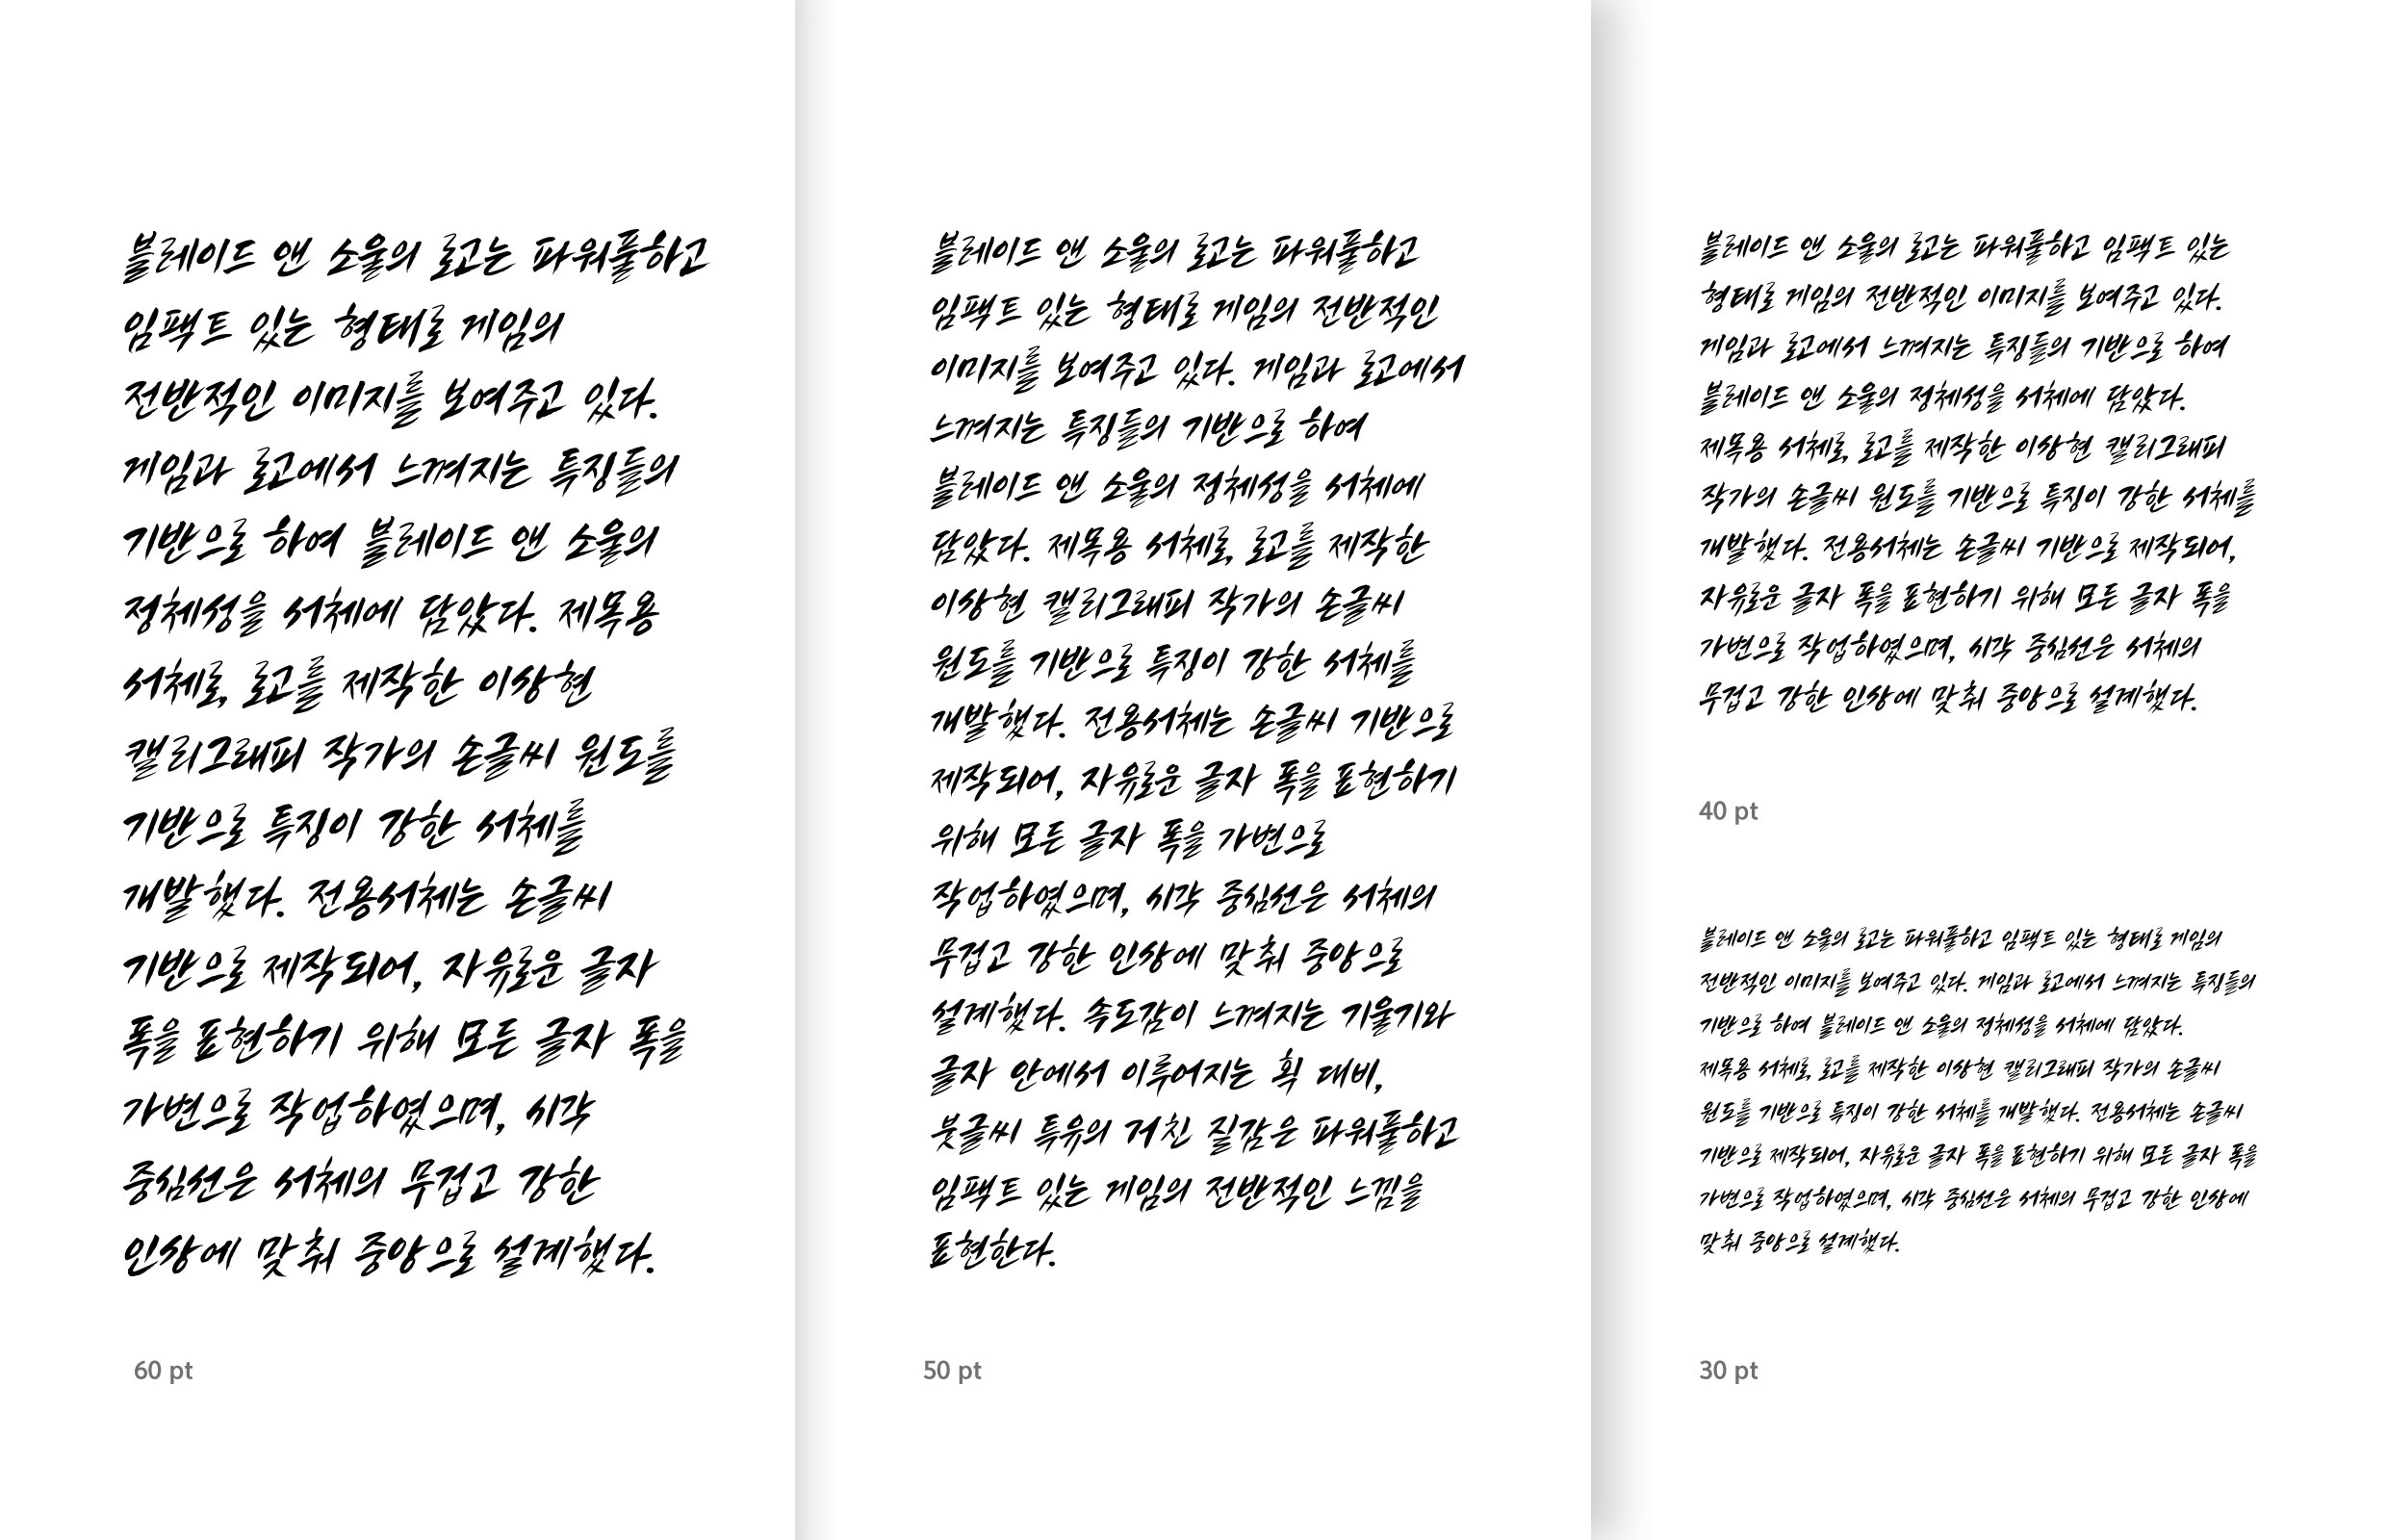 블레이드 앤 소울의 로고는 파워풀하고
임팩트 있는 형태로 게임의
전반적인 이미지를 보여주고 있다.
게임과 로고에서 느껴지는 특징들의
기반으로 하여 블레이드 앤 소울의
정체성을 서체에 담았다. 제목용
서체로, 로고를 제작한 이상현
캘리그래피 작가의 손글씨 원도를
기반으로 특징이 강한 서체를
개발했다. 전용서체는 손글씨
기반으로 제작되어, 자유로운 글자
폭을 표현하기 위해 모든 글자 폭을
가변으로 작업하였으며, 시각
중심선은 서체의 무겁고 강한
인상에 맞춰 중앙으로 설계했다.
60 pt
블레이드 앤 소울의 로고는 파워풀하고
임팩트 있는 형태로 게임의 전반적인
이미지를 보여주고 있다. 게임과 로고에서
느껴지는 특징들의 기반으로 하여
블레이드 앤 소울의 정체성을 서체에
담았다. 제목용 서체로, 로고를 제작한
이상현 캘리그래피 작가의 손글씨
원도를 기반으로 특징이 강한 서체를
개발했다. 전용서체는 손글씨 기반으로
제작되어, 자유로운 글자 폭을 표현하기
위해 모든 글자 폭을 가변으로
작업하였으며, 시각 중심선은 서체의
무겁고 강한 인상에 맞춰 중앙으로
설계했다. 속도감이 느껴지는 기울기와
글자 안에서 이루어지는 획 대비,
붓글씨 특유의 거친 질감은 파워풀하고
임팩트 있는 게임의 전반적인 느낌을
표현한다.
50 pt
블레이드 앤 소울의 로고는 파워풀하고 임팩트 있는
형태로 게임의 전반적인 이미지를 보여주고 있다.
게임과 로고에서 느껴지는 특징들의 기반으로 하여
블레이드 앤 소울의 정체성을 서체에 담았다.
제목용 서체로, 로고를 제작한 이상현 캘리그래피
작가의 손글씨 원도를 기반으로 특징이 강한 서체를
개발했다. 전용서체는 손글씨 기반으로 제작되어,
자유로운 글자 폭을 표현하기 위해 모든 글자 폭을
가변으로 작업하였으며, 시각 중심선은 서체의
무겁고 강한 인상에 맞춰 중앙으로 설계했다.
40 pt
블레이드 앤 소울의 로고는 파워풀하고 임팩트 있는 형태로 게임의
전반적인 이미지를 보여주고 있다. 게임과 로고에서 느껴지는 특징들의
기반으로 하여 블레이드 앤 소울의 정체성을 서체에 담았다.
제목용 서체로, 로고를 제작한 이상현 캘리그래피 작가의 손글씨
원도를 기반으로 특징이 강한 서체를 개발했다. 전용서체는 손글씨
기반으로 제작되어, 자유로운 글자 폭을 표현하기 위해 모든 글자 폭을
가변으로 작업하였으며, 시각 중심선은 서체의 무겁고 강한 인상에
맞춰 중앙으로 설계했다.
30 pt